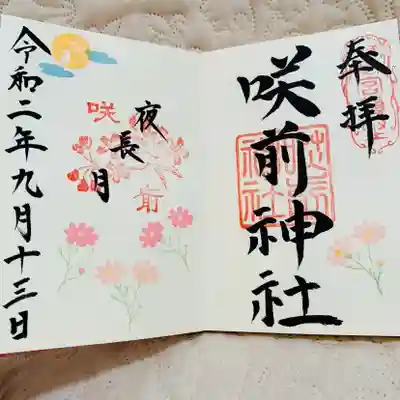 奉拝
咲前神社
夜長月
咲前
令和二年九月十三日